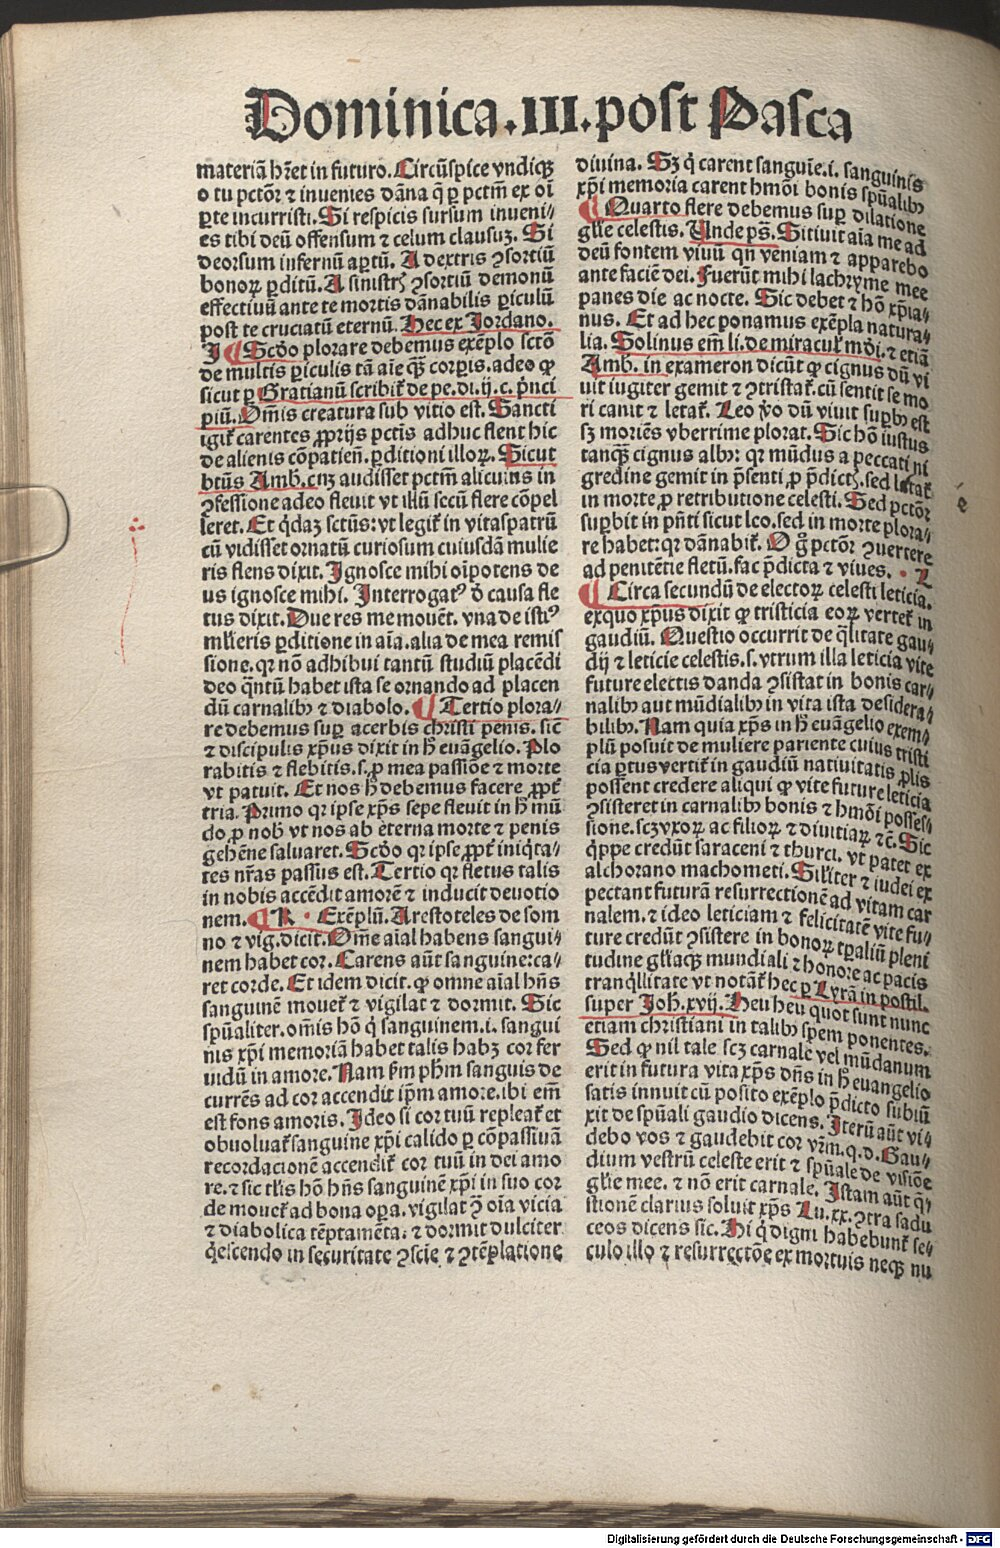 Dominica.III.post Pasca
materiā hr̄et in futuro. Circūspice vndiqꝫ
o tu pctōr ⁊ inuenies dāna q̄ ꝑ pctm̄ ex oī
ꝑte incurristi. Si respicis sursum inueni⸗
es tibi deū offensum ⁊ celum clausuꝫ. Si
deorsum infernū aꝑtū. A dextris ꝯsortiū
bonoꝝ ꝑditū. A sinistrꝭ ꝯsortiū demonū
effectiuū ante te mortis dānabilis ꝑiculū
post te cruciatū eternū. Hec ex Iordano.
I ¶ Scd̄o plorare debemus exēplo sctō
de multis ꝑiculis tā aīe qꝫ̄ corꝑis. adeo ꝙ
sicut ꝑ Gratianū scribit̄ de pe. di. ij. c. pͥnci
piū. Om̄is creatura sub vitio est. Sancti
igit̄ carentes ꝓprijs pctīs adhuc flent hic
de alienis cōpatien̄. ꝑditioni illoꝝ. Sicut
btūs Amb. cuꝫ audisset pctm̄ alicuius in
ꝯfessione adeo fleuit vt illū secū flere cōpel
leret. Et qͥdaꝫ sctūs: vt legit̄ in vitaspatrū
cū vidisset ornatū curiosum cuiusdā mulie
ris flens dixit. Ignosce mihi oīpotens de
us ignosce mihi. Interrogatꝰ d̄ causa fle
tus dixit. Due res me mouēt. vna de istiꝰ
ml̄ieris ꝑditione in aīa. alia de mea remis
sione. qꝛ nō adhibui tantū studiū placēdi
deo qͣntū habet ista se ornando ad placen
dū carnalibꝰ ⁊ diabolo. ¶ Tertio plora⸗
re debemus suꝑ acerbis christi penis. sic̄
⁊ discipulis xp̄us dixit in hͦ euāgelio. Plo
rabitis ⁊ flebitis. s. ꝓ mea passiōe ⁊ morte
vt patuit. Et nos hͦ debemus facere ꝓpt̄
tria. Primo qꝛ ipse xp̄s sepe fleuit in hͦ mū
do ꝓ nobꝭ vt nos ab eterna morte ⁊ penis
gehēne saluaret. Scd̄o qꝛ ipse ꝓpt̄ iniqͥta⸗
tes nr̄as passus est. Tertio qꝛ fletus talis
in nobis accēdit amorē ⁊ inducit deuotio
nem. ¶ K · Exēplū. Arestoteles de som
no ⁊ vig. dicit. Om̄e aīal habens sangui⸗
nem habet cor. Carens aūt sanguine: ca⸗
ret corde. Et idem dicit. ꝙ omne aīal hn̄s
sanguinē mouet̄ ⁊ vigilat ⁊ dormit. Sic
spūaliter. om̄is hō qͥ sanguinem. i. sangui
nis xp̄i memoriā habet talis habꝫ cor fer
uidū in amore. Nam ẜm ph̄m sanguis de
currēs ad cor accendit ip̄m amore. ibi em̄
est fons amoris. Ideo si cor tuū repleat̄ et
obuoluat̄ sanguine xp̄i calido ꝑ cōpassiuā
recordacionē accendit̄ cor tuū in dei amo
re. ⁊ sic tl̄is hō hn̄s sanguinē xp̄i in suo cor
de mouet̄ ad bona oꝑa. vigilat ꝯ̄ oīa vicia
⁊ diabolica tēptamēta: ⁊ dormit dulciter
qͥescendo in securitate ꝯscīe ⁊ ꝯtēplatione
diuina. Sꝫ qͥ carent sanguīe. i. sanguinis
xp̄i memoria carent hmōi bonis spūalibꝰ
¶ Quarto flere debemus suꝑ dilatione
gl̄ie celestis. Unde ps̄. Sitiuit aīa me ad
deū fontem viuū qn̄ veniam ⁊ apparebo
ante faciē dei. Fuerūt mihi lachryme mee
panes die ac nocte. Sic debet ⁊ hō xp̄ia⸗
nus. Et ad hec ponamus exēpla natura⸗
lia. Solinus em̄ li. de miracul̄ mōi. ⁊ etiā
Amb. in exameron dicūt ꝙ cignus dū vi
uit iugiter gemit ⁊ ꝯtristat̄. cū sentit se mo
ri canit ⁊ letat̄. Leo v̄o dū viuit suꝑbꝰ est
sꝫ moriēs vberrime plorat. Sic hō iustus
tanqꝫ̄ cignus albꝰ: qꝛ mūdus a peccati ni
gredine gemit in pn̄senti ꝓ p̄dictꝭ. sed letat̄
in morte ꝓ retributione celesti. Sed pctōr
suꝑbit in pn̄ti sicut leo. sed in morte plora⸗
re habet: qꝛ dānabit̄. O gͦ pctōr ꝯuertere
ad penitētie fletū. fac p̄dicta ⁊ viues. · L
¶ Circa secundū de electoꝝ celesti leticia.
exquo xp̄us dixit ꝙ tristicia eoꝝ vertet̄ in
gaudiū. Questio occurrit de qͣlitate gau⸗
dij ⁊ leticie celestis. s. vtrum illa leticia vite
future electis danda ꝯsistat in bonis car⸗
nalibꝰ aut mūdialibꝰ in vita ista desidera⸗
bilibꝰ. Nam quia xp̄s in hͦ euāgelio exem⸗
plū posuit de muliere pariente cuius tristi
cia ꝑtus vertit̄ in gaudiū natiuitatis ꝓlis
possent credere aliqui ꝙ vite future leticia
ꝯsisteret in carnalibꝰ bonis ⁊ hmōi posses⸗
sione. scꝫ vxoꝝ ac filioꝝ ⁊ diuitiaꝝ ⁊c̄. Sic
qͥppe credūt saraceni ⁊ thurci. vt patet ex
alchorano machometi. Silīter ⁊ iudei ex
pectant futurā resurrectionē ad vitam car
nalem. ⁊ ideo leticiam ⁊ felicitatē vite fu⸗
ture credūt ꝯsistere in bonoꝝ tꝑaliū pleni
tudine gl̄iaqꝫ mundiali ⁊ honore ac pacis
tranqͥllitate vt notāt̄ hec ꝑ Lyrā in postil.
super Joh̄. xvij. Heu heu quot sunt nunc
etiam christiani in talibꝰ spem ponentes.
Sed ꝙ nil tale scꝫ carnale vel mūdanum
erit in futura vita xp̄s dn̄s in hͦ euangelio
satis innuit cū posito exēplo p̄dicto subiū
xit de spūali gaudio dicens. Iterū aūt vi⸗
debo vos ⁊ gaudebit cor vr̄m. q. d. Gau⸗
dium vestrū celeste erit ⁊ spūale de visiōe
gl̄ie mee. ⁊ nō erit carnale. Istam aūt qͣ⸗
stionē clarius soluit xp̄s Lu. xx. ꝯtra sadu
ceos dicens sic. Hi qͥ digni habebunt̄ se⸗
culo illo ⁊ resurrectōe ex mortuis neqꝫ nu
Digitalisierung gefördert durch die Deutsche Forschungsgemeinschaft - DFG